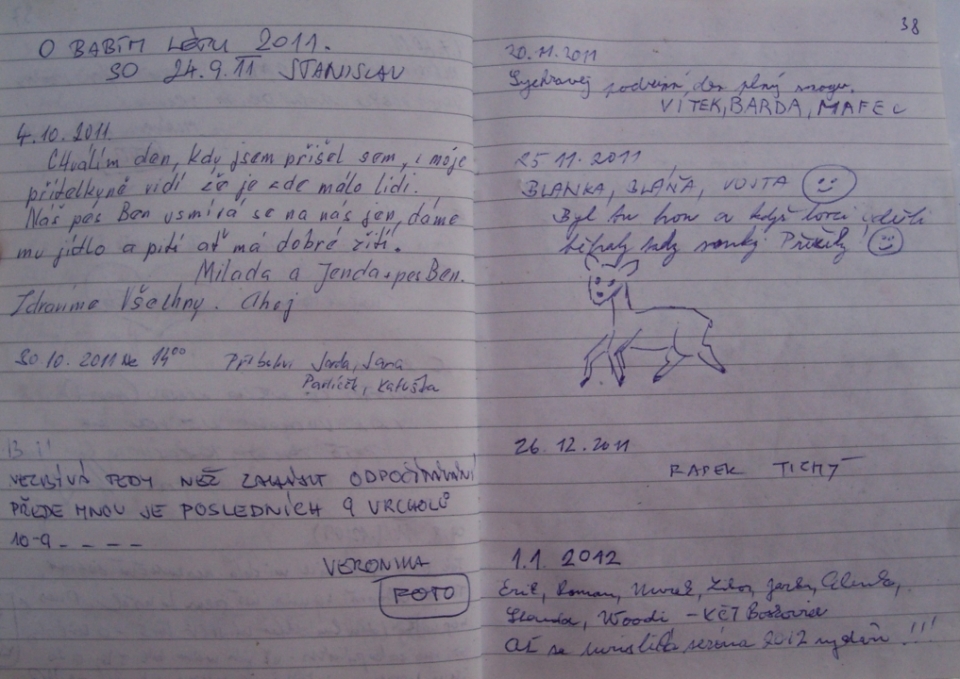 O BABÍM LÉTU 2011.
SO 24.9.11 STANISLAV
4.10.2011
Chválím den, kdy jsem přišel sem, i moje
přítelkyně vidí že je zde málo lidí.
Náš pes Ben usmívá se na nás jen, dáme
mu jídlo a pití ať má dobré žití.
Milada a Jenda + pes Ben.
Zdravíme Všechny. Ahoj
30 10. 2011 14⁰⁰ Příběhy Jarda, Jana
Pavlíček, Katuška
NEZBÝVÁ TEDY NEŽ ZAHÁJIT ODPOČÍTÁVÁNÍ
PŘEDE MNOU JE POSLEDNÍCH 9 VRCHOLŮ
10-9 _ _ _ _
VERONIKA
FOTO
38
20.11.2011
Sychravej podzimní den plný
VÍTEK, BARDA, MAFEC
25 11. 2011
BLANKA, BLÁŇA, VOJTA
Byl tu hon a když lovci
běhaly tady srnky. Přežily!
26.12.2011
RADEK TICHÝ
1.1. 2012
Erik, Roman, Mirek, Libor, Alenka,
Standa, Woodi - KČT
Ať se turistická sezóna 2012 vydaří !!!